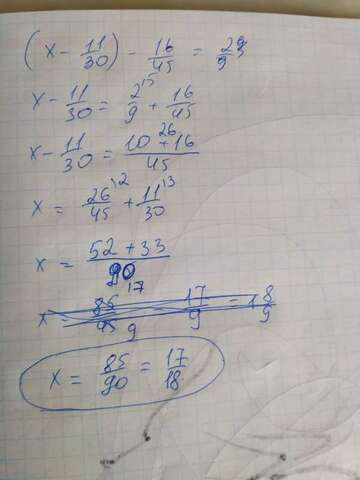 (x - 11/30) - 16/45 = 2/9
x - 11/30 = 2/9 \5 + 16/45
x - 11/30 = (10 + 16)/45 26
x = 26/45 \2 + 11/30 \3
x = (52 + 33)/90
x = 85/45 17 9 17/9 = 1 8/9
x = 85/90 = 17/18